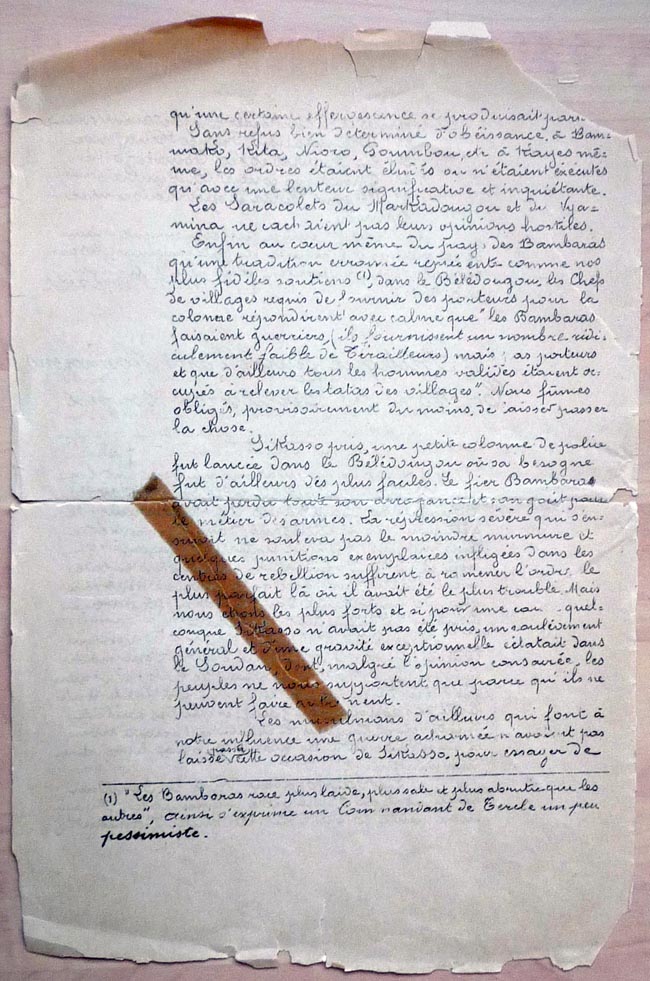 qu'une certaine effervescence se produisait parmi
Sans refus bien déterminé d'obéissance, à Bam-
mako, Kita, Nioro, Goumbou, etc à Kayes mê-
me, les ordres étaient éludés ou n'étaient exécutés
qu'avec une lenteur significative et inquiétante.
Les Saracolets du Markadougou et du Nya-
mina ne cachaient pas leurs opinions hostiles.
Enfin au cœur même du pays des Bambaras
qu'une tradition erronée représente comme nos
plus fidèles soutiens (1), dans le Bélédougou, les Chefs
de villages requis de fournir des porteurs pour la
colonne répondirent avec calme que "les Bambaras
faisaient guerriers, (ils fournissent un nombre ridi-
culement faible de Tirailleurs) mais pas porteurs
et que d'ailleurs tous les hommes valides étaient oc-
cupés à relever les tatas des villages". Nous fûmes
obligés, provisoirement du moins, de laisser passer
la chose.
Sikasso pris, une petite colonne de police
fut lancée dans le Bélédougou où sa besogne
fut d'ailleurs des plus faciles. Le fier Bambaras
avait perdu toute son arrogance et son goût pour
le métier des armes. La répression sévère qui s'en-
suivit ne souleva pas le moindre murmure et
quelques punitions exemplaires infligées dans les
centres de rebellion suffirent à ramener l'ordre le
plus parfait là où il avait été le plus troublé. Mais
nous étions les plus forts et si pour une cause quel-
conque Sikasso n'avait pas été pris, un soulèvement
général et d'une gravité exceptionnelle éclatait dans
le Soudan dont, malgré l'opinion consacrée, les
peuples ne nous supportent que parce qu'ils ne
peuvent faire autrement.
Les musulmans d'ailleurs qui font à
notre influence une guerre acharnée n'avaient pas
laissé passer cette occasion de Sikasso, pour essayer de
(1) "Les Bambaras race plus laide, plus sale et plus abrutie que les
autres", ainsi s'exprime un Commandant de Cercle un peu
pessimiste.